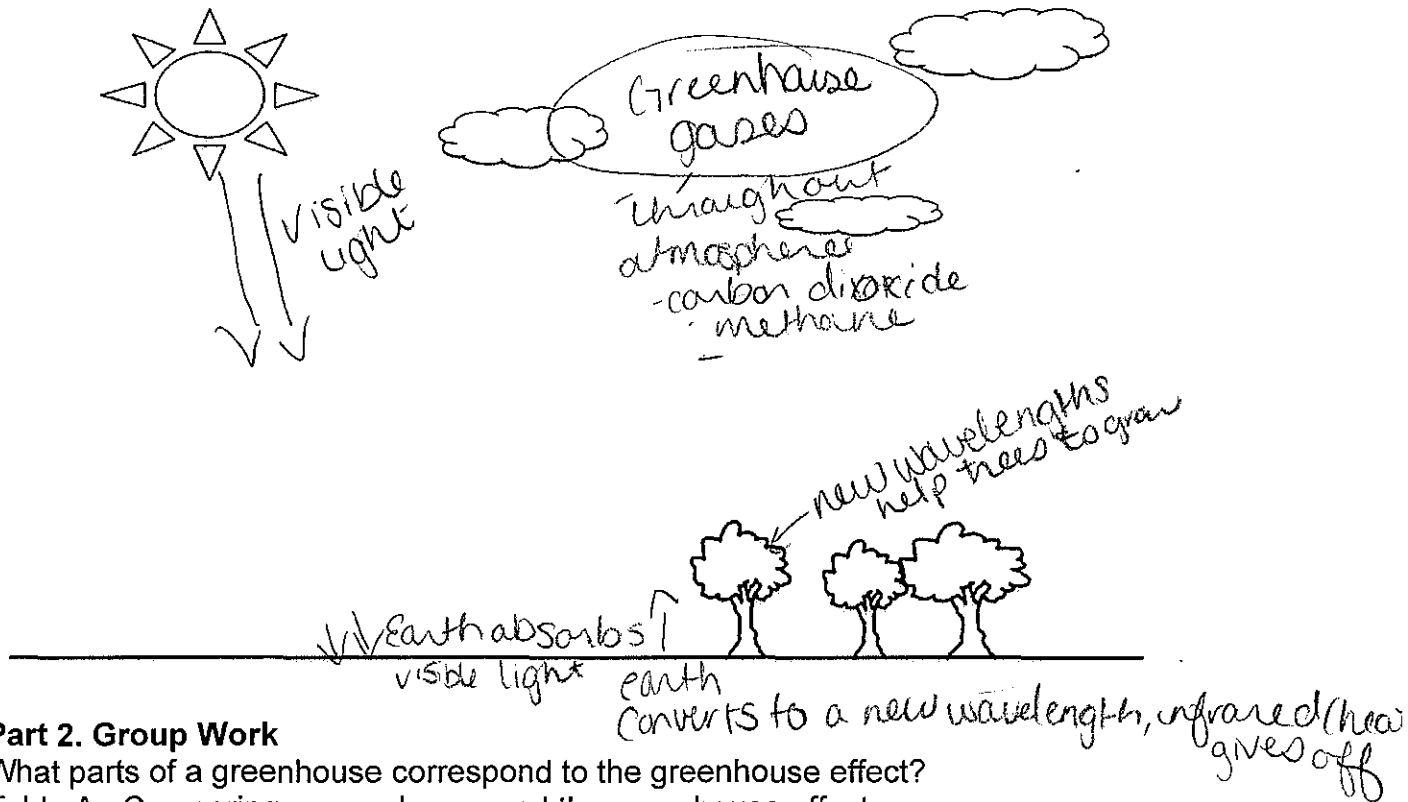 Greenhouse
gases
visible
light
throughout
atmosphere
-carbon dioxide
- methane
-
new wavelengths
help trees to grow
Earth absorbs
visible light
earth
converts to a new wavelength, infrared (hea
gives off
Part 2. Group Work
What parts of a greenhouse correspond to the greenhouse effect?